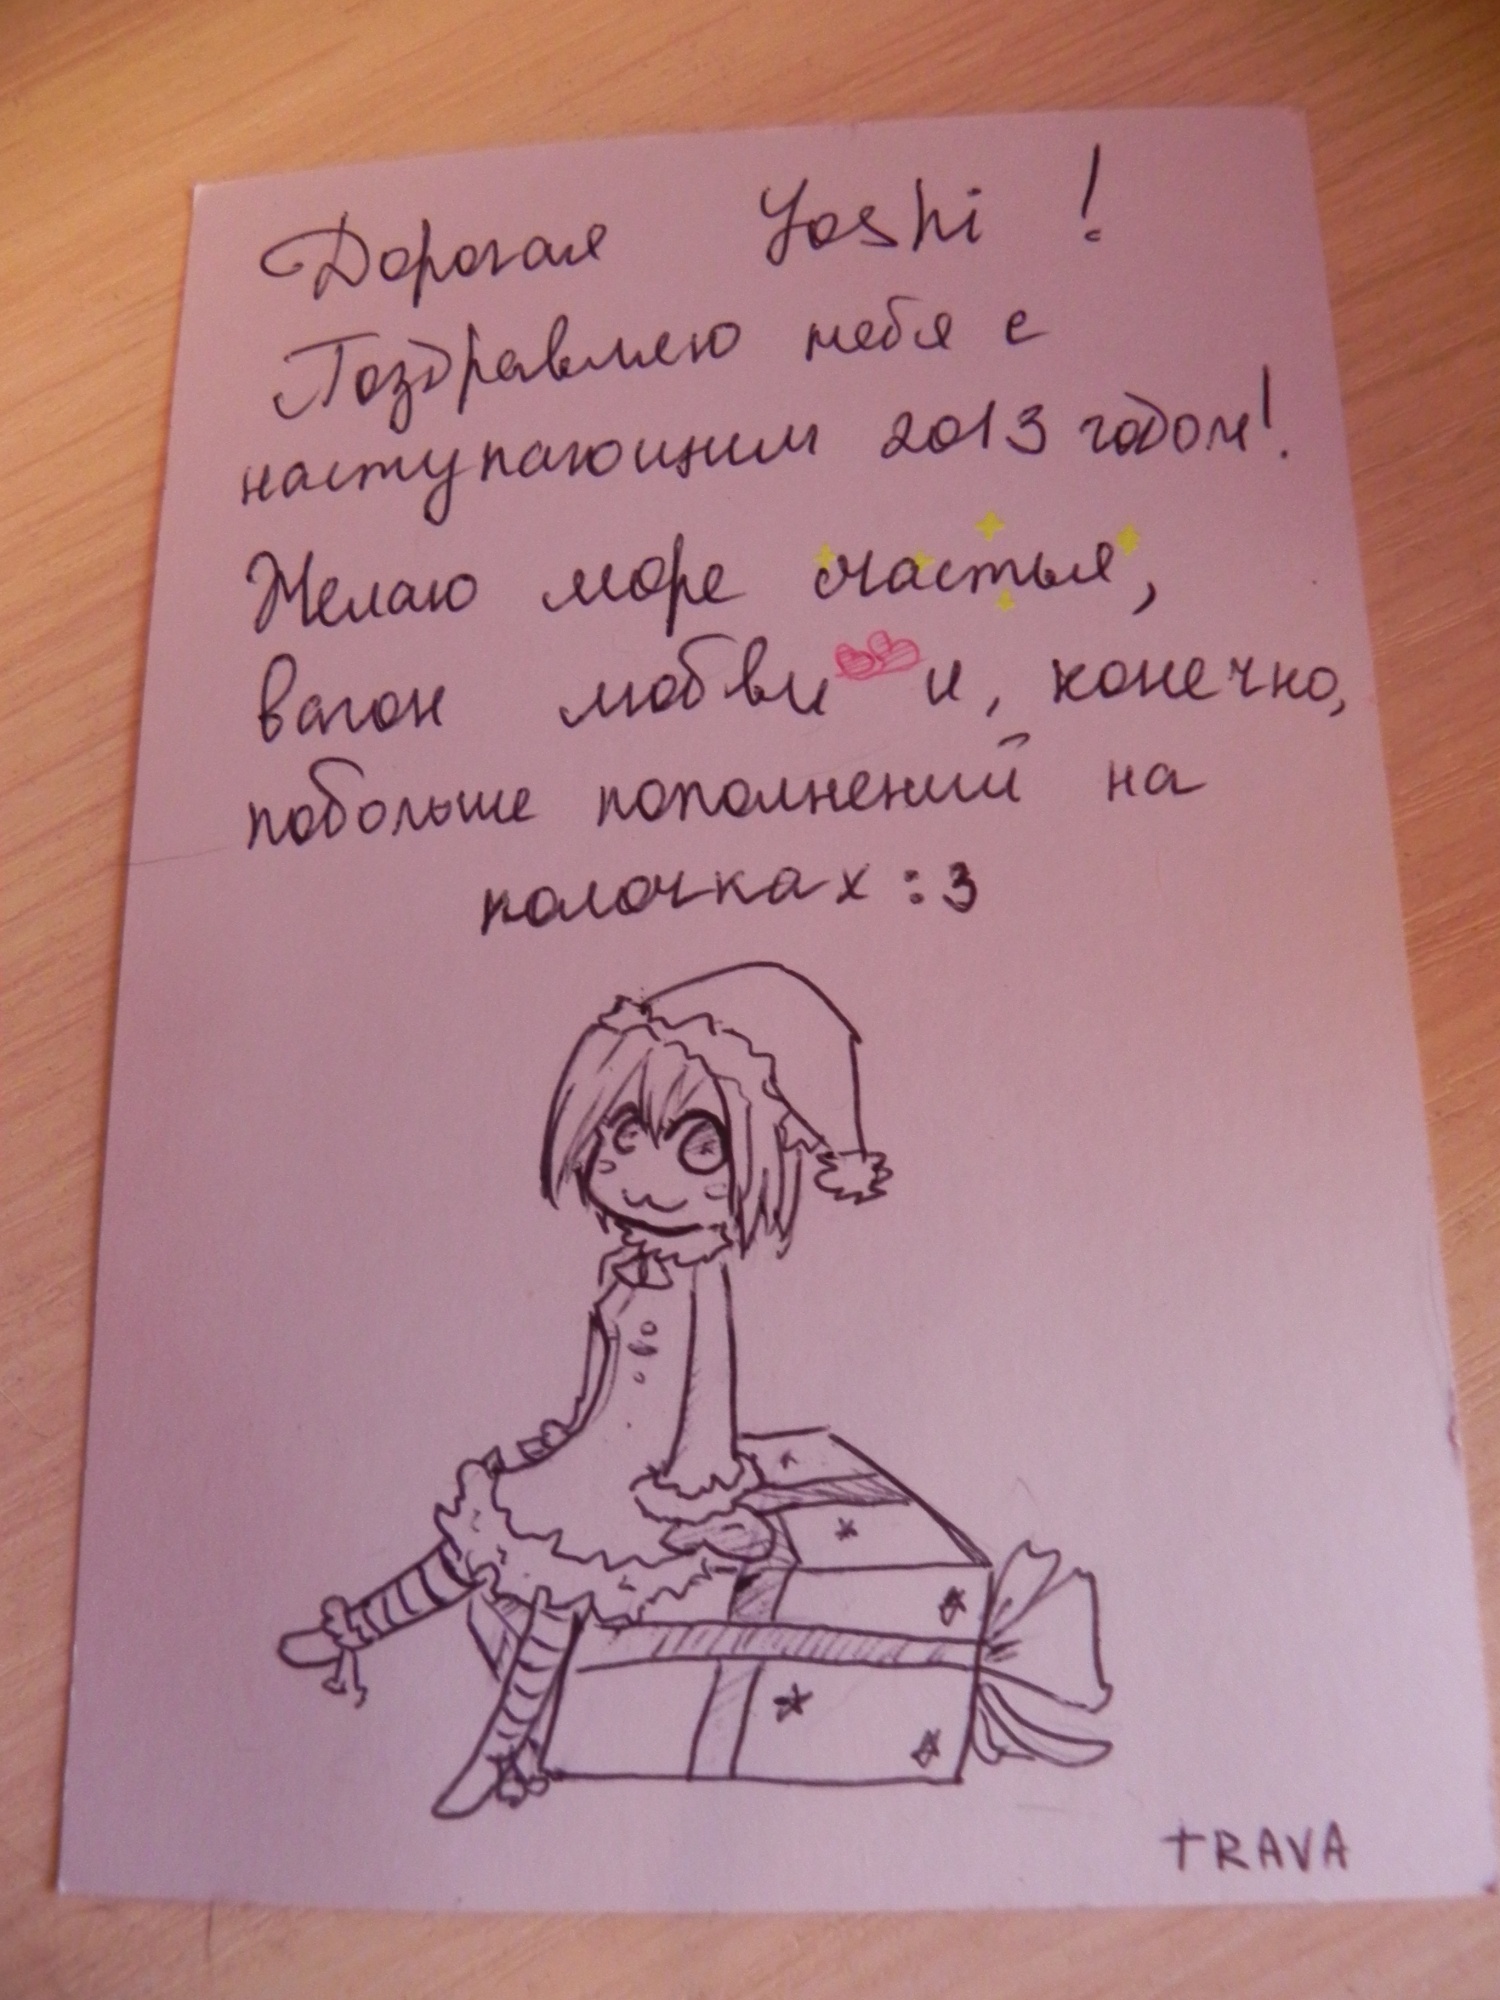 Дорогая Yoshi !
Поздравляю тебя с
наступающим 2013 годом!
Желаю море счастья,
вагон любви и, конечно,
побольше пополнений на
полочках :3
TRAVA